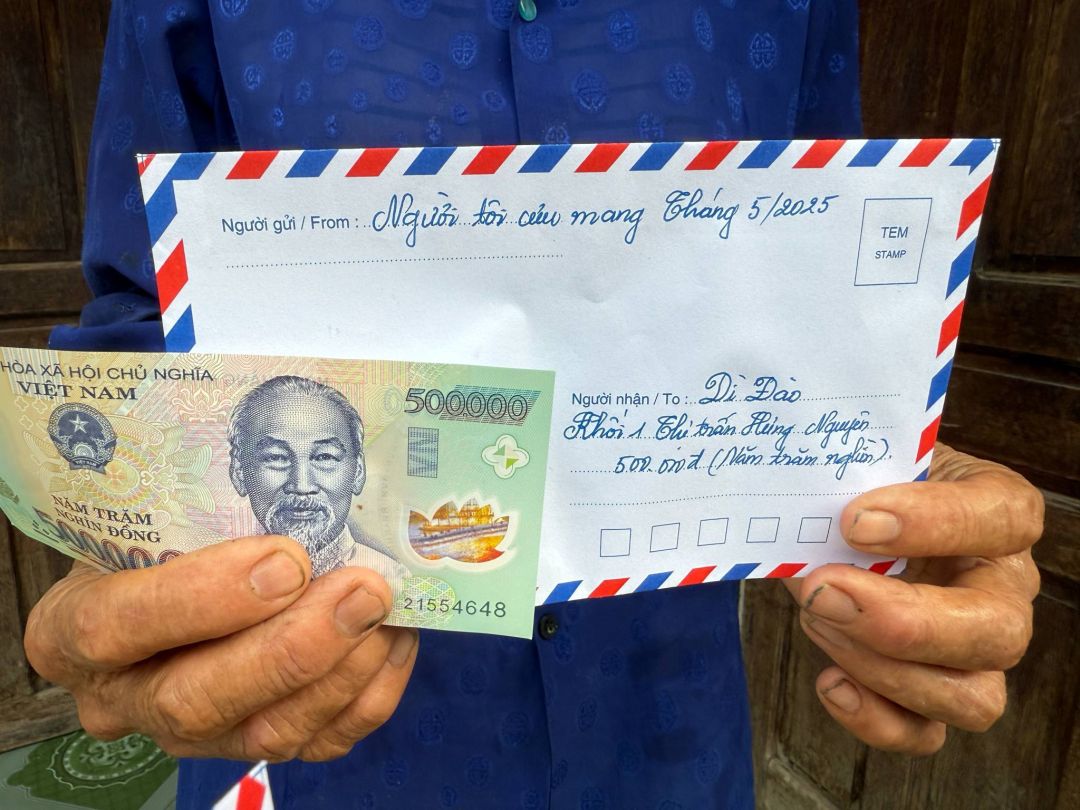 Người gửi / From : Người tôi cưu mang Tháng 5/2025
TEM
STAMP
Người nhận / To : Dì Đào
Khối 1 Thị trấn Hưng Nguyên
500.000đ (Năm trăm nghìn).
HÒA XÃ HỘI CHỦ NGHĨA
VIỆT NAM
500000
NĂM TRĂM
NGHÌN ĐỒNG
500000
21554648